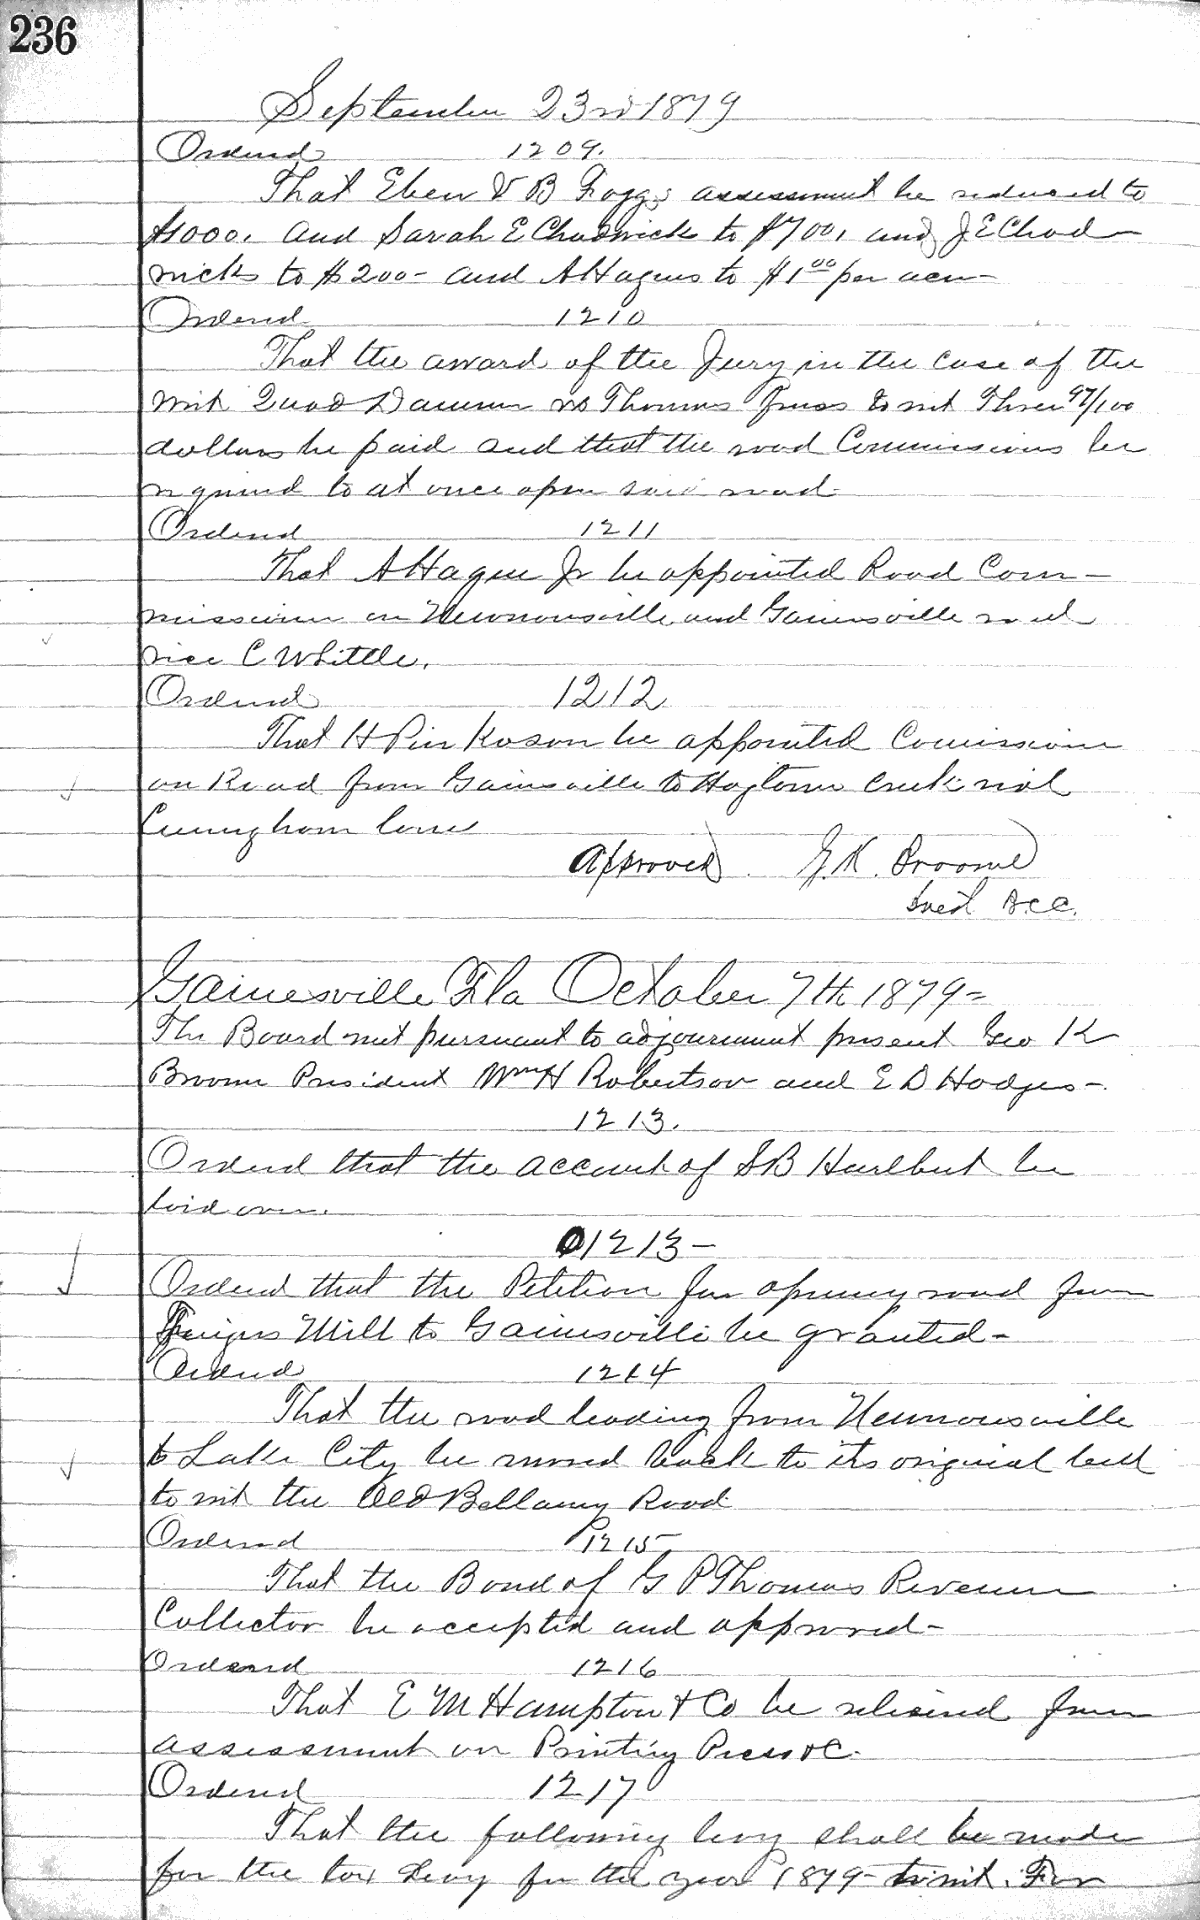 236
September 23rd 1879
Ordered 1209.
That Eben & B Foggs assessment be reduced to
$1000. and Sarah E Chadwick to $700, and J E Chad-
wick to $200- and A Hagues to $1 00 per acre-
Ordered 1210
That the award of the Jury in the case of the
writ Quod Damum vs Thomas to wit Three 97/100
dollars be paid and that the road Commissioners be
required to at once open said road-
Ordered 1211
That A Hague Jr be appointed Road Com-
missioner on Newnansville and Gainesville road
vice C Whittle.
Ordered 1212
That H Pinkoson be appointed Comissioner
on Road from Gainsville to Hogtown Creek via
Cunnyham lane
Approved G.K. Broome
Prest B.C.C.
Gainesville Fla October 7th 1879-
The Board met pursuant to adjournment present Geo K
Broome President Wm H Robertson and E D Hodges-
1213.
Ordered that the account of S B Hurlbut be
laid over.
1213-
Ordered that the Petition for opening road from
Mill to Gainesville be granted-
Ordered 1214
That the road leading from Newnansville
to Lake City be turned back to its original bed
to wit the Old Bellamy Road
Ordered 1215
That the Bond of G P Thomas Revenue
Collector be accepted and approved-
Ordered 1216
That E M Hampton & Co be relieved from
assessment on Printing Press &C.
Ordered 1217
That the following levy shall be made
for the tax Levy for the year 1879- to wit. For